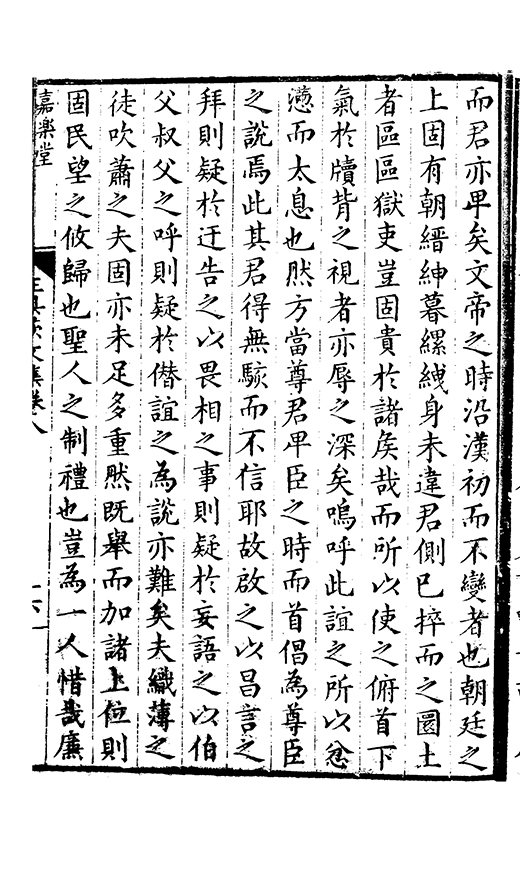 而君亦卑矣文帝之時沿漢初而不變者也朝廷之
上固有朝縉紳暮縲絏身未違君側已捽而之圜土
者區區獄吏豈固貴於諸矦哉而所以使之俯首下
氣於牘背之視者亦辱之深矣嗚呼此誼之所以忿
懣而太息也然方當尊君卑臣之時而首倡為尊臣
之說焉此其君得無駭而不信耶故啟之以昌言之
拜則疑於迂告之以畏相之事則疑於妄語之以伯
父叔父之呼則疑於僭誼之為說亦難矣夫織薄之
徒吹蕭之夫固亦未足多重然既舉而加諸上位則
固民望之攸歸也聖人之制禮也豈為一人惜哉廉
文集卷八
嘉樂堂